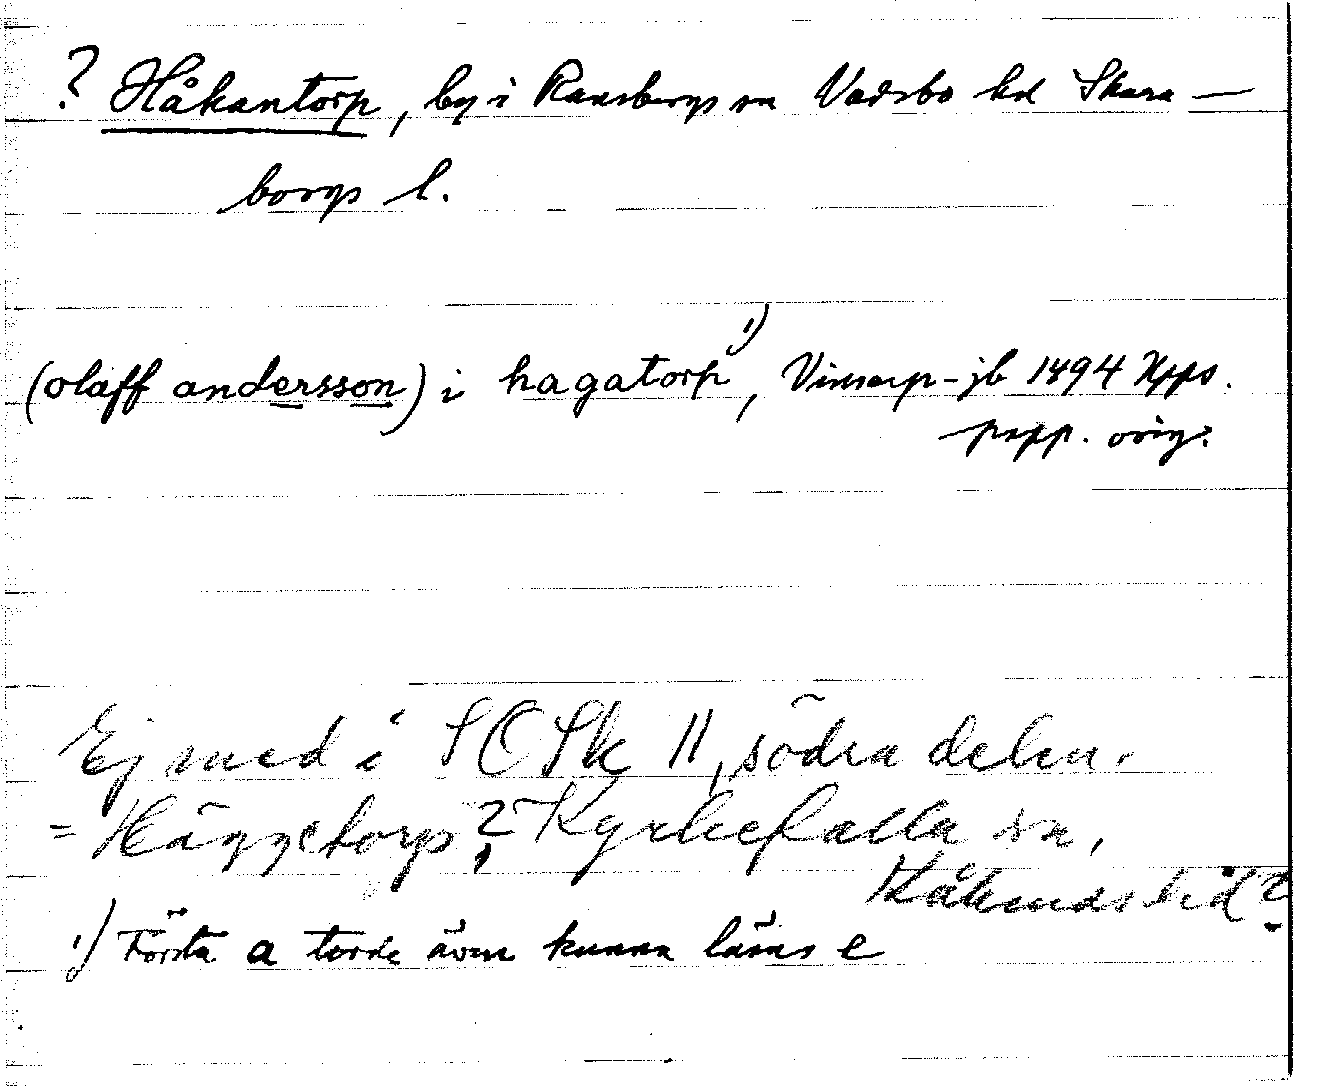 ? Håkantorp, by i Ransbergs sn Vadsbo hd Skara—
borgs l.
(olaff andersson) i hagatorp ¹), Vinsarp-jb 1494 Upps.
papp. orig.
Ej med i SOSk 11, södra delen.
= Häggetorp?, Kyrkefalla sn,
Kåkinds hd?
¹) Första a torde även kunna läsas e